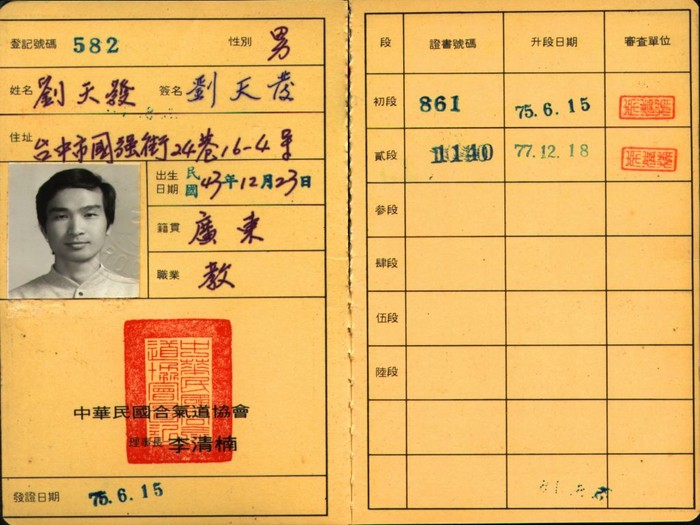 登記號碼 582 性別 男
姓名 劉天發 簽名 劉天發
住址 台中市國强街24巷16-4号
出生日期 民國43年12月23日
籍貫 廣東
職業 教
中華民國合氣道協會
理事長 李清楠
發證日期 75.6.15
段 證書號碼 升段日期 審查單位
初段 861 75.6.15
貳段 1140 77.12.18
參段
肆段
伍段
陸段